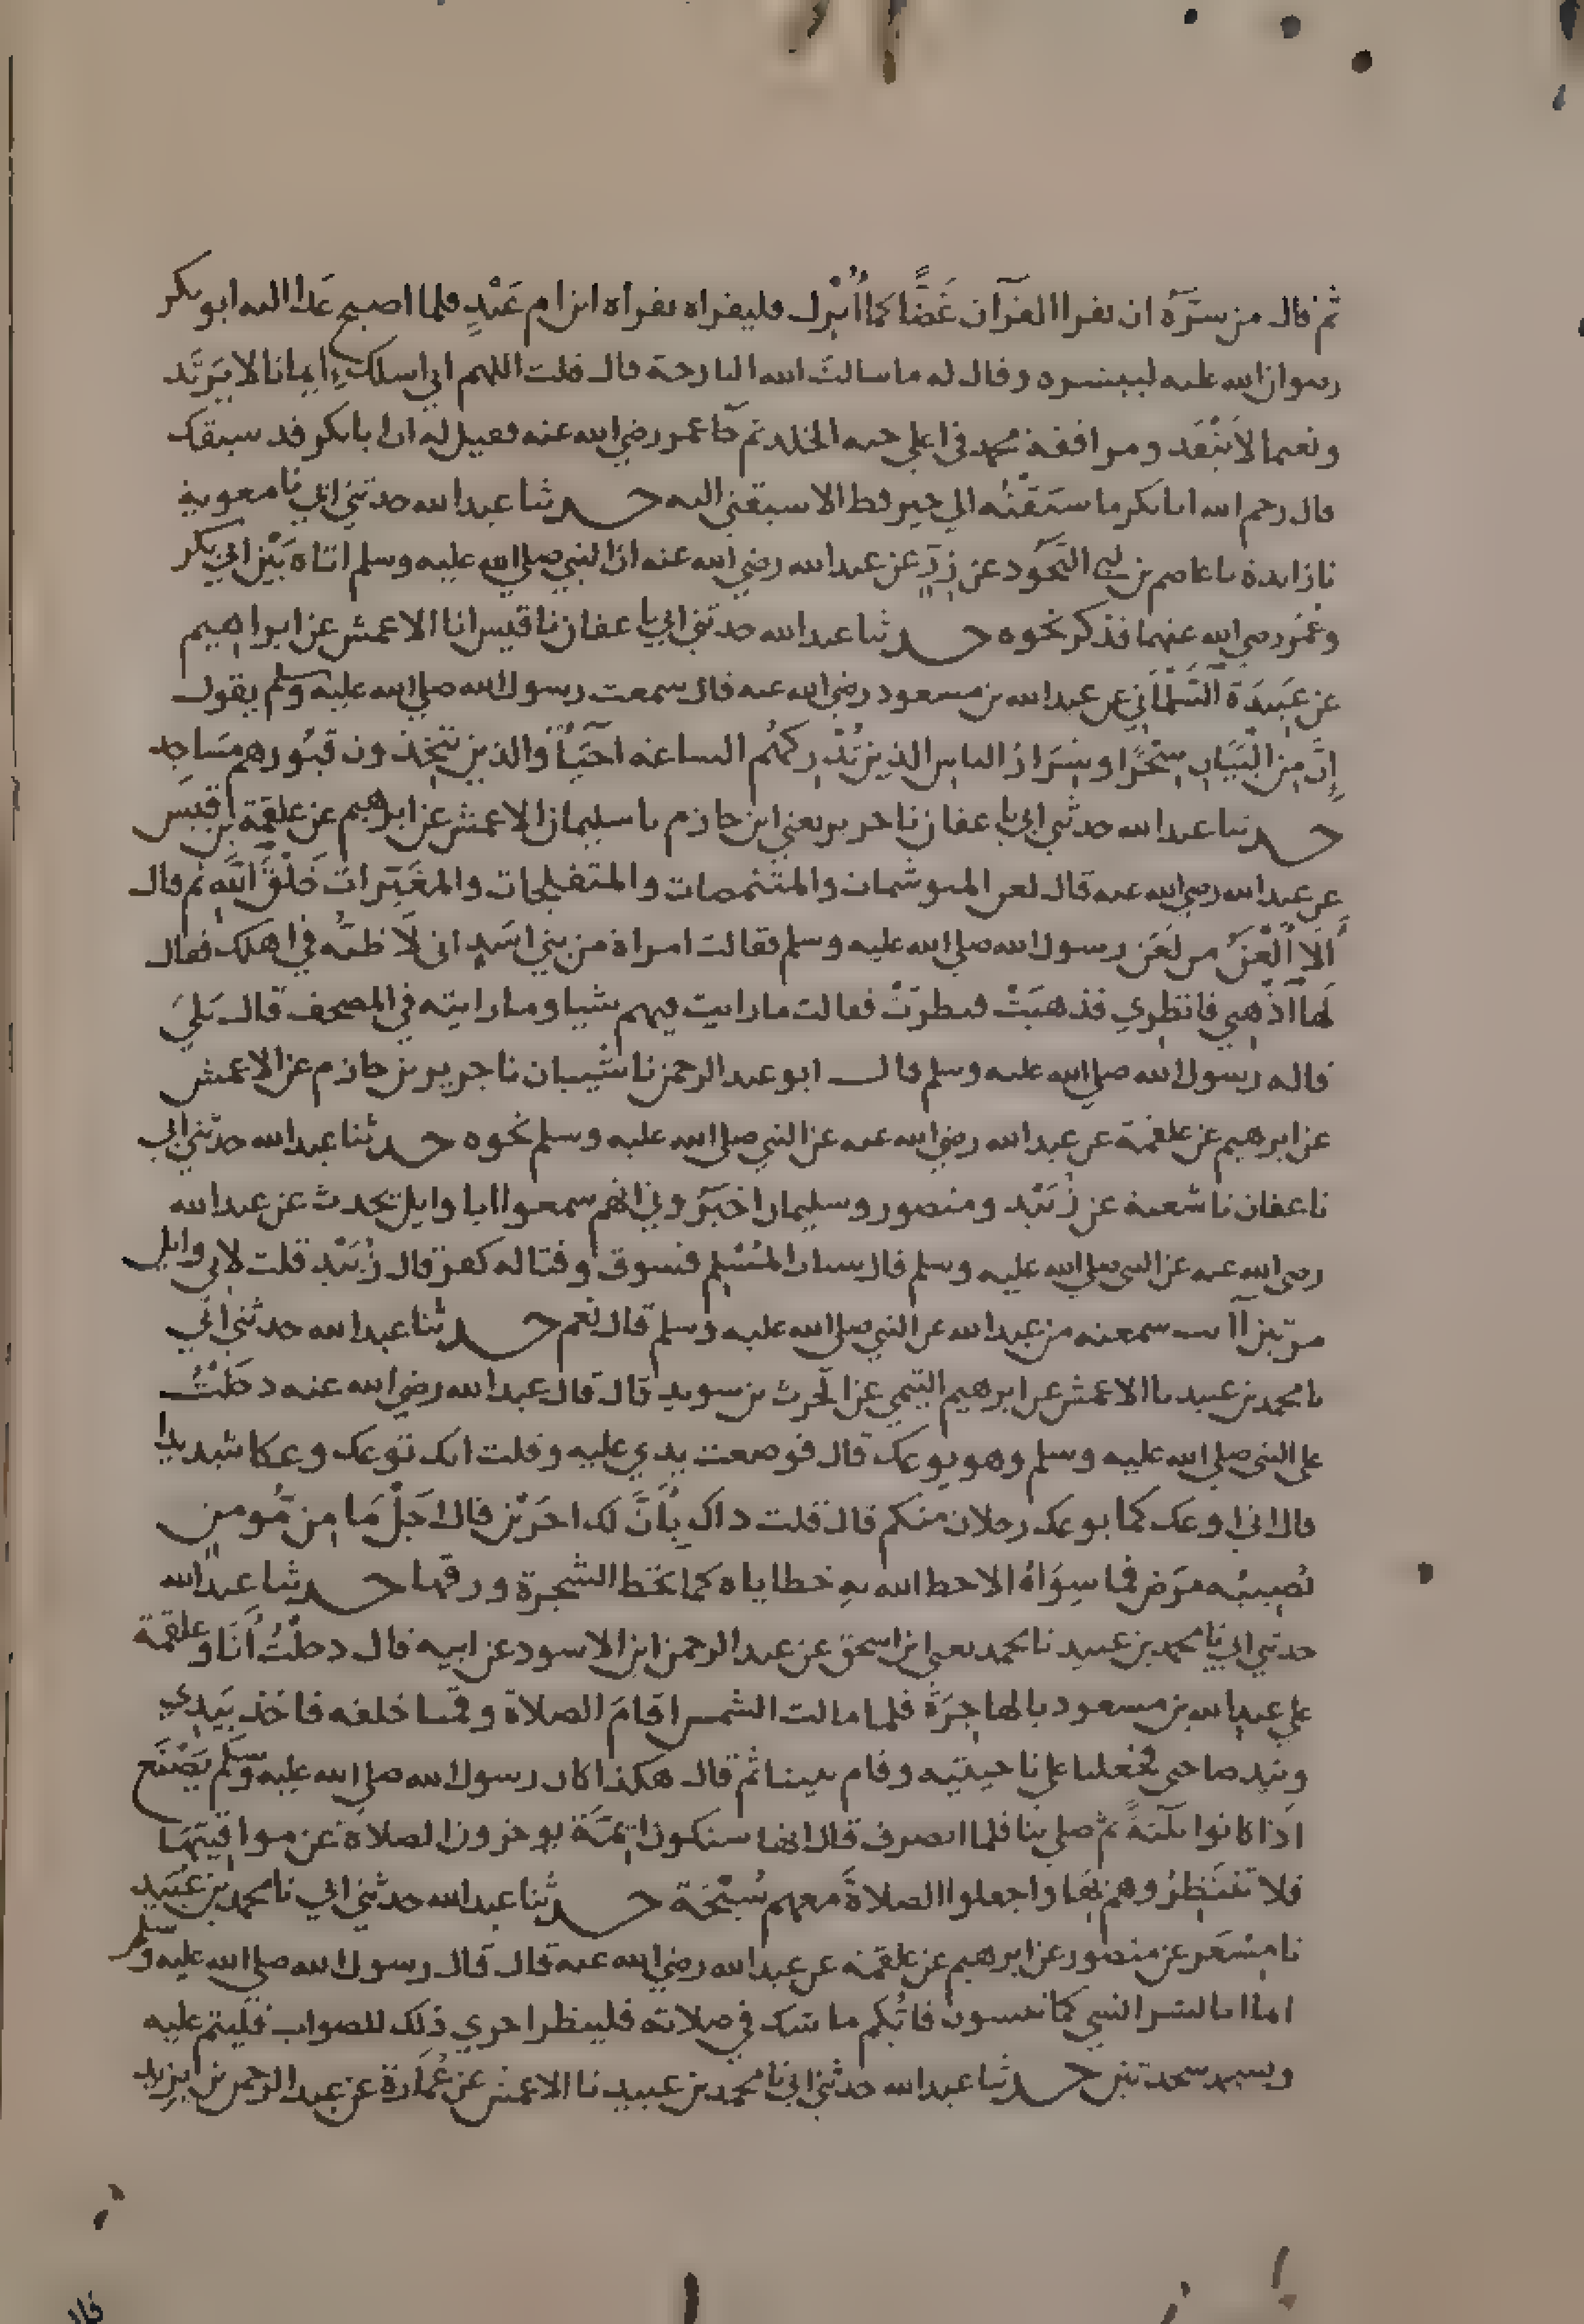 ثم قال من سَرَّهُ ان يقرا القرآن غَضًّا كما اُنْزِل فليقراه بقراءة ابن ام عَبْدٍ فلما اصبح غدا اليه ابو بكر
رضوان الله عليه ليبشره وقال له ما سالت الله البارحة قال قلت اللهم اني اسلك ايمانا لا يَرتَد
ونعيما لا يَنْفَد ومرافقة محمد في اعلى جنه الخلد ثم جآ عمر رضي الله عنه فقيل له ان ابا بكر قد سبقك
قال رحم الله ابا بكر ما سَبَقْتُه الى خير قط الا سبقني اليه حدثنا عبد الله حدثني ابي نا معوية
نا زايدة نا عاصم بن ابي النَّجُود عن زِرٍّ عن عبد الله رضي الله عنه ان النبي صلى الله عليه وسلم اتاه بَيْن ابي بكر
وعُمَر رضي الله عنهما فذكر نحوه حدثنا عبد الله حدثني ابي نا عفان نا قيس انا الاعمش عن ابراهيم
عن عَبِيدَة السَّلْمَاني عن عبد الله بن مسعود رضي الله عنه قال سمعت رسول الله صلى الله عليه وسلم يقول
إنَّ مِن الْبَيَان سِحْرًا وشِرَارُ الناس الذين تُدْرِكُهُم الساعه اَحْيَآءً والذين يتَّخِذون قبُورهم مَسَاجِد
حدثنا عبد الله حدثني ابي نا عفان نا جرير يعني ابن حازم نا سليمان الاعمش عن ابرهيم عن علقمة بن قيس
عن عبد الله رضي الله عنه قال لعن المتوشمات والمتنمصات والمتفلجات والمغَيِّرات خَلْقَ الله ثم قال
اَلَا اَلْعَنُ من لَعَن رسول الله صلى الله عليه وسلم فقالت امراة من بني اسَدٍ اني لَاَظنُّه في اهلك فقال
لَها اذْهبي فانظرِي فذهبَتْ فنظرَتْ فقالت ما رايت فيهم شيا وما رايته في المصحف قال بَلىَ
قاله رسول الله صلى الله عليه وسلم قال ابو عبد الرحمن نا شيبان نا جرير بن حازم عن الاعمش
عن ابرهيم عن علقمة عن عبد الله رضي الله عنه عن النبي صلى الله عليه وسلم نحوه حدثنا عبد الله حدثني ابي
نا عفان نا شعبة عن زُبَيْد ومنصور وسليمان اخبَرُوني انهم سمعوا ابا وايل يحدث عن عبد الله
رضي الله عنه عن النبي صلى الله عليه وسلم قال سباب المُسْلِم فسوق وقتاله كفر قال زُبَيْد قلت لابي وايل
مرتين آانت سمعته من عبد الله عن النبي صلى الله عليه وسلم قال نعم حدثنا عبد الله حدثني ابي
نا محمد بن عبيد نا الاعمش عن ابرهيم التيمي عن الحرث بن سويد قال قال عبد الله رضي الله عنه دخَلْتُ
على النبي صلى الله عليه وسلم وهو يوعك قال فوضعت يدي عليه وقلت انك توعك وعكا شديدا
قال اني اوعك كما يوعك رجلان منكم قال قلت ذاك بِأَنَّ لك اجرَيْن قال اَجَلْ مَا مِن مُّومن
يُصِيبُه مرَض فما سِوَاهُ الا حط الله بهِ خطاياه كما تحط الشجرة ورقها حدثنا عبد الله
حدثني ابي نا محمد بن عبيد نا محمد يعني ابن اسحق عن عبد الرحمن ابن الاسود عن ابيه قال دخلْتُ اَنَا وعلقمة
على عبد الله بن مسعود بالهاجِرَةِ فلما مالت الشمس اقامَ الصلاة وقمنا خلفه فاخذ بيَدِي
وبيَدِ صاحبي فجعلنا على ناحيتيه وقام بيننا ثم قال هكذا كان رسول الله صلى الله عليه وسلم يَصْنَع
اذَا كانوا ثلَثةً ثم صلى بنا فلما انصرف قال انها ستكون ايمَّة يوخرون الصلاة عن مواقيتِهَا
فلا تَنتَظِرُوهم بَها واجعلوا الصلاةَ معهم سُبْحَة حدثنا عبد الله حدثني ابي نا محمد بن عُبَيد
نا مِسْعَر عن منصور عن ابرهيم عن علقمه عن عبد الله رضي الله عنه قال قال رسول الله صلى الله عليه وسلم
انما انا بشر انسي كما تنسون فايُّكم ما شك في صلاته فلينظر احري ذلك للصواب فليتم عليه
ويسجد سجدتين حدثنا عبد الله حدثني ابي نا محمد بن عبيد نا الاعمش عن عُمَارة عن عبد الرحمن بن يزيد